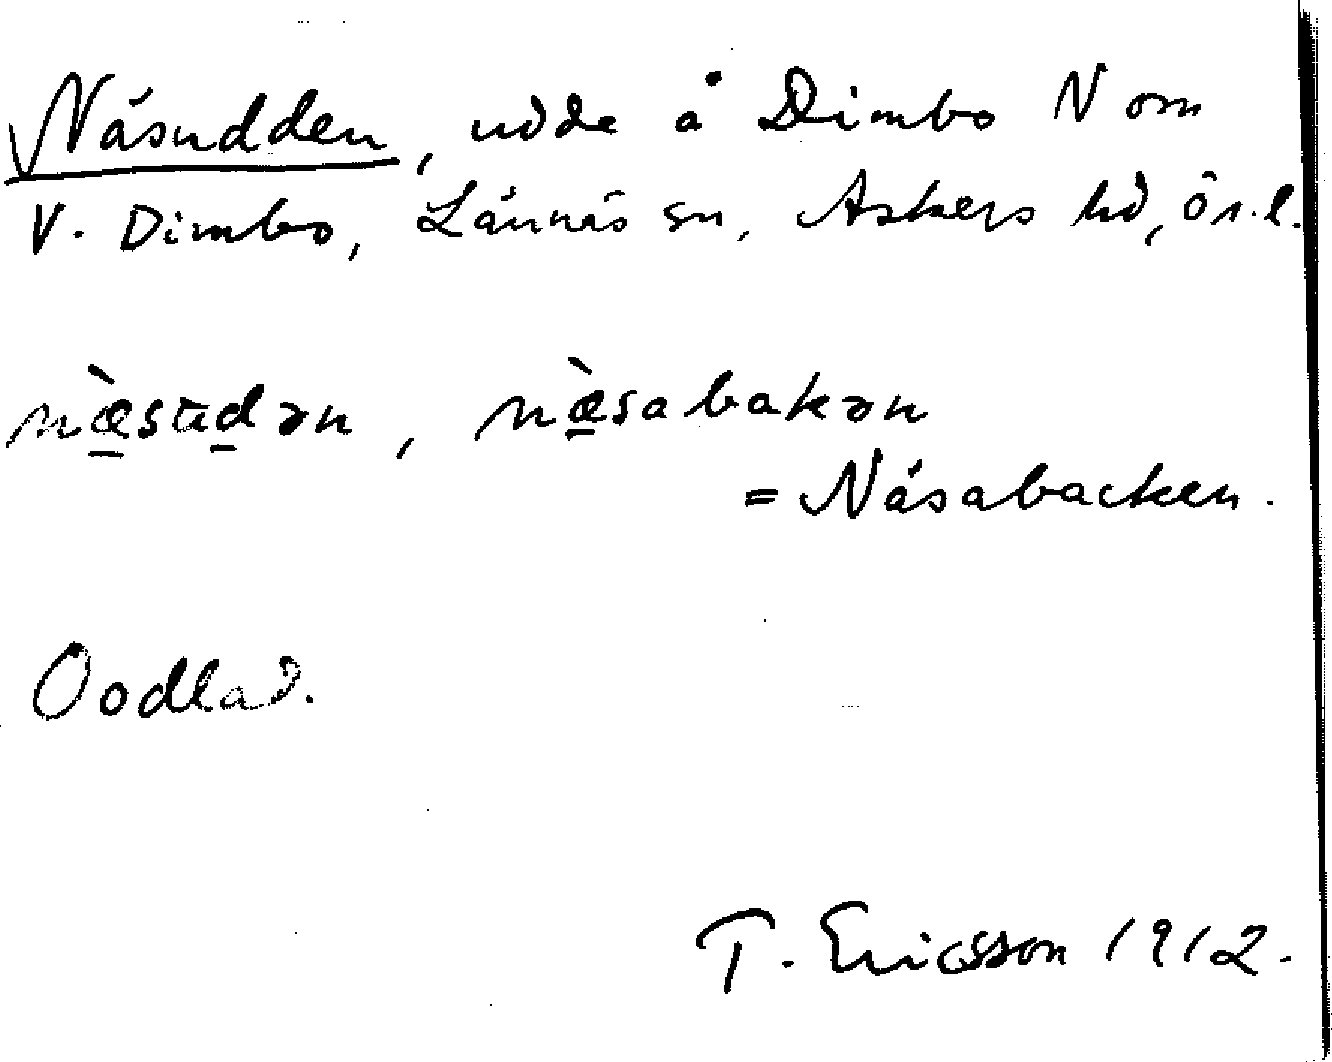 Näsudden, udde å Dimbo N om
V. Dimbo, Lännäs sn, Askers hd, Ör.l.
næ̀sudən, næ̀sabakən
= Näsabacken.
Oodlad.
T. Ericsson 1912.